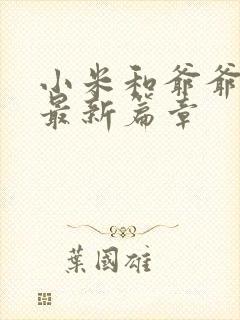 小米和爷爷
最新篇章
葉國雄